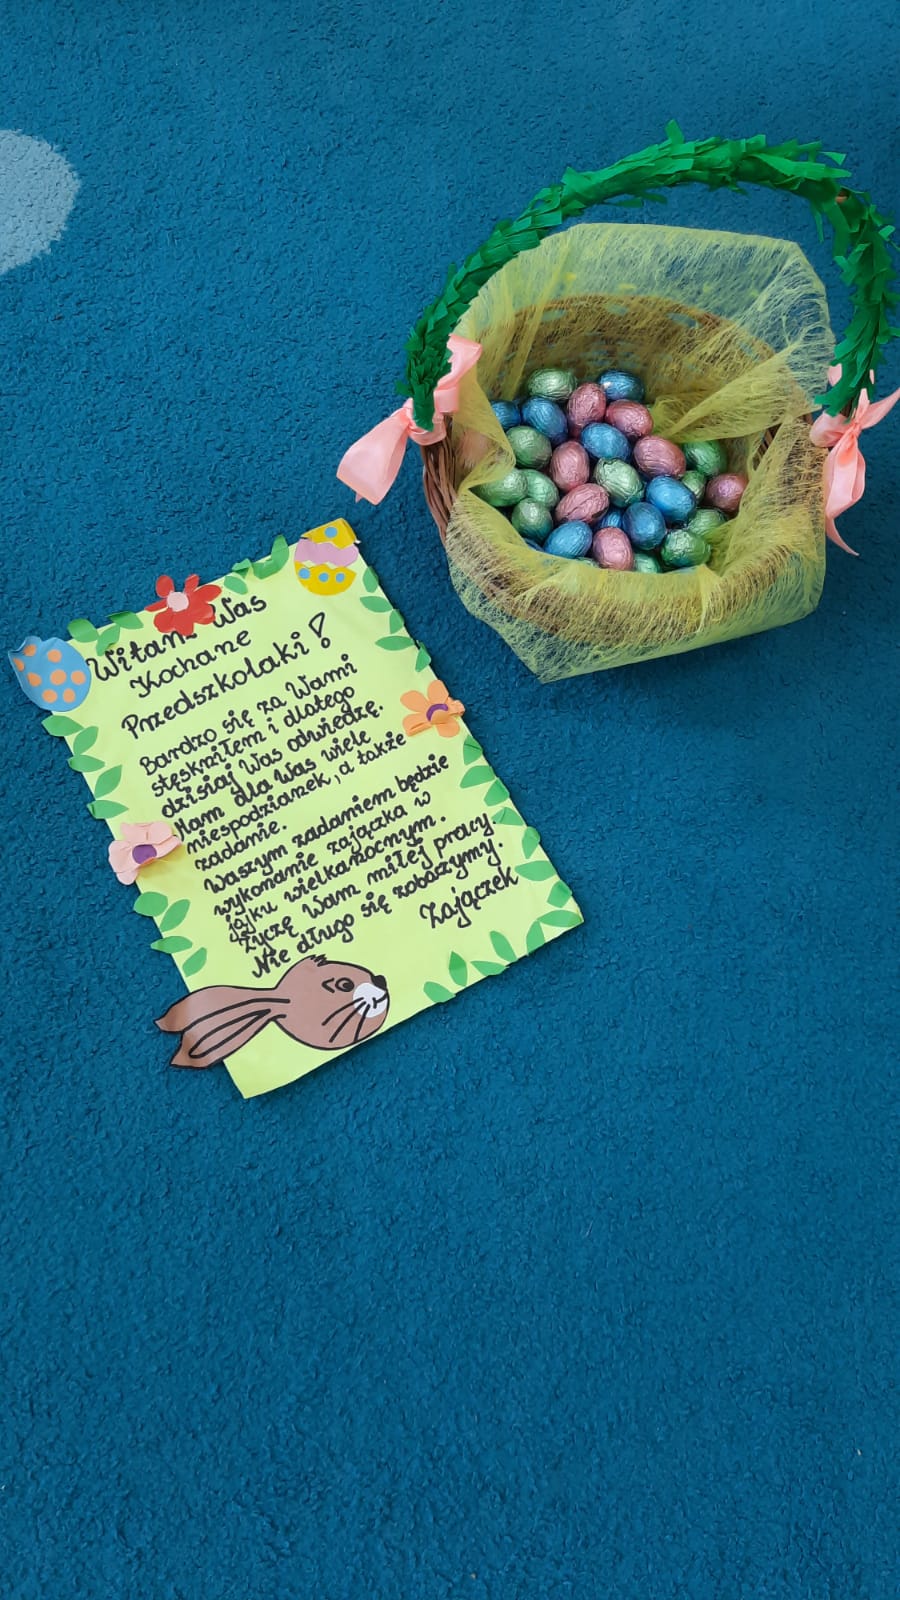 Witam Was
Kochane
Przedszkolaki!
Bardzo się za Wami
stęskniłem i dlatego
dzisiaj Was odwiedzę.
Mam dla Was wiele
niespodzianek, a także
zadanie.
Waszym zadaniem będzie
wykonanie zajączka w
jajku wielkanocnym.
Życzę Wam miłej pracy.
Nie długo się zobaczymy.
Zajączek